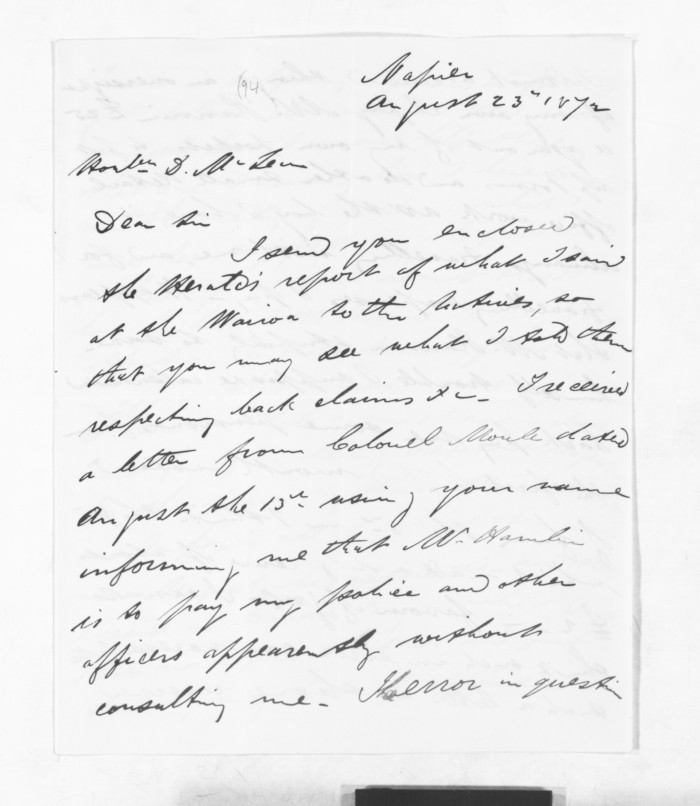 194
Napier
August 23rd 1872
Honble D. McLean
Dear Sir
I send you enclosed
the Herald's report of what I said
at the Wairoa to the Natives, so
that you may see what I told them
respecting back claims &c - I received
a letter from Colonel Moule dated
August the 13th using your name
informing me that Mr Hamlin
is to pay my police and other
officers appearently without
consulting me - The error in question